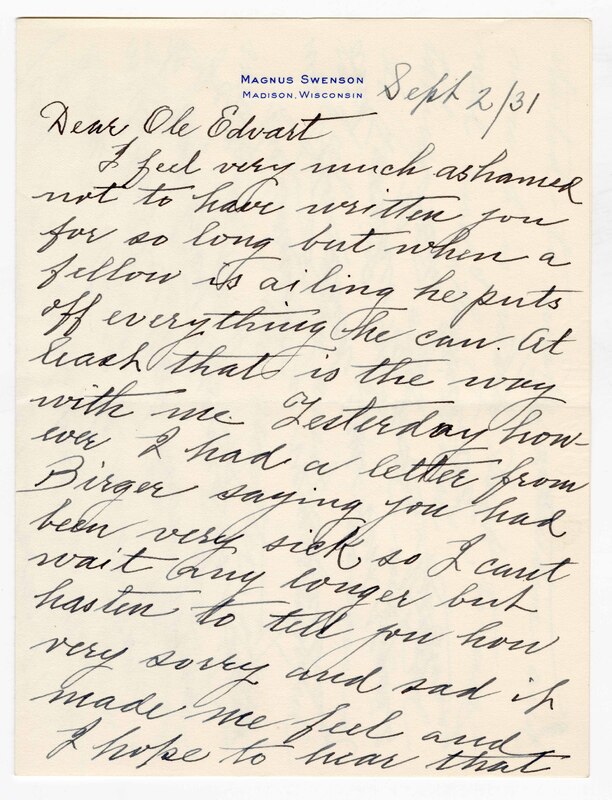 MAGNUS SWENSON
MADISON, WISCONSIN
Sept 2/31
Dear Ole Edvart
I feel very much ashamed
not to have written you
for so long but when a
fellow is ailing he puts
off everything he can. At
least that is the way
with me. Yesterday how-
ever I had a letter from
Birger saying you had
been very sick so I cant
wait any longer but
hasten to tell you how
very sorry and sad it
made me feel and
I hope to hear that